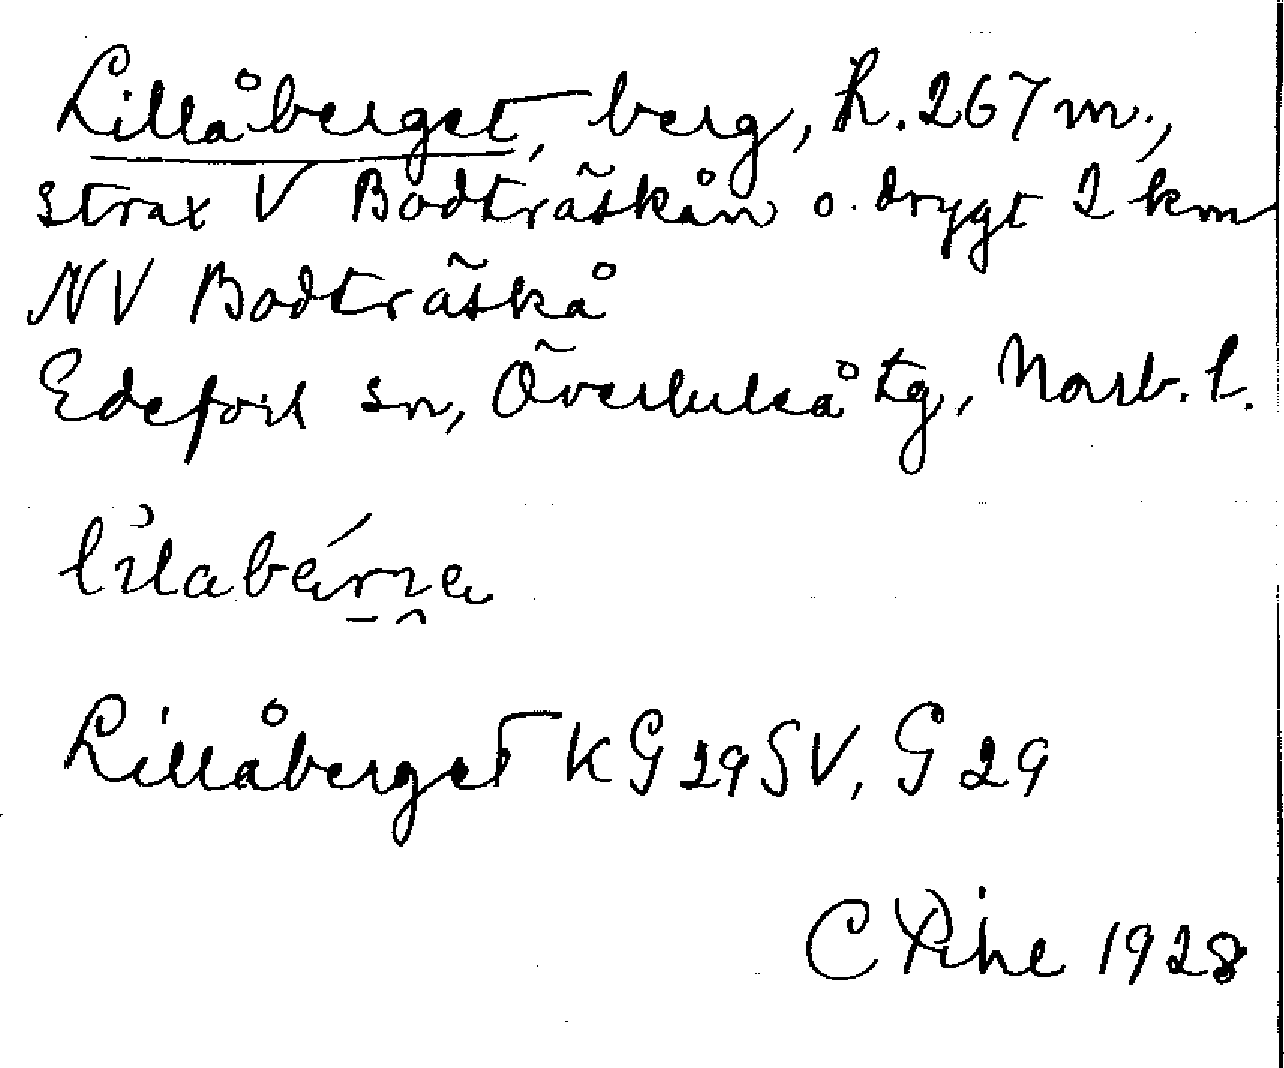 Lillåberget, berg, h. 267 m.,
strax V Bodträskån o. drygt 2 km
NV Bodträskå
Edefors sn, Överluleå tg, Norrb. l.
Lillåberget KG 29 SV, G 29
C Pihl 1928